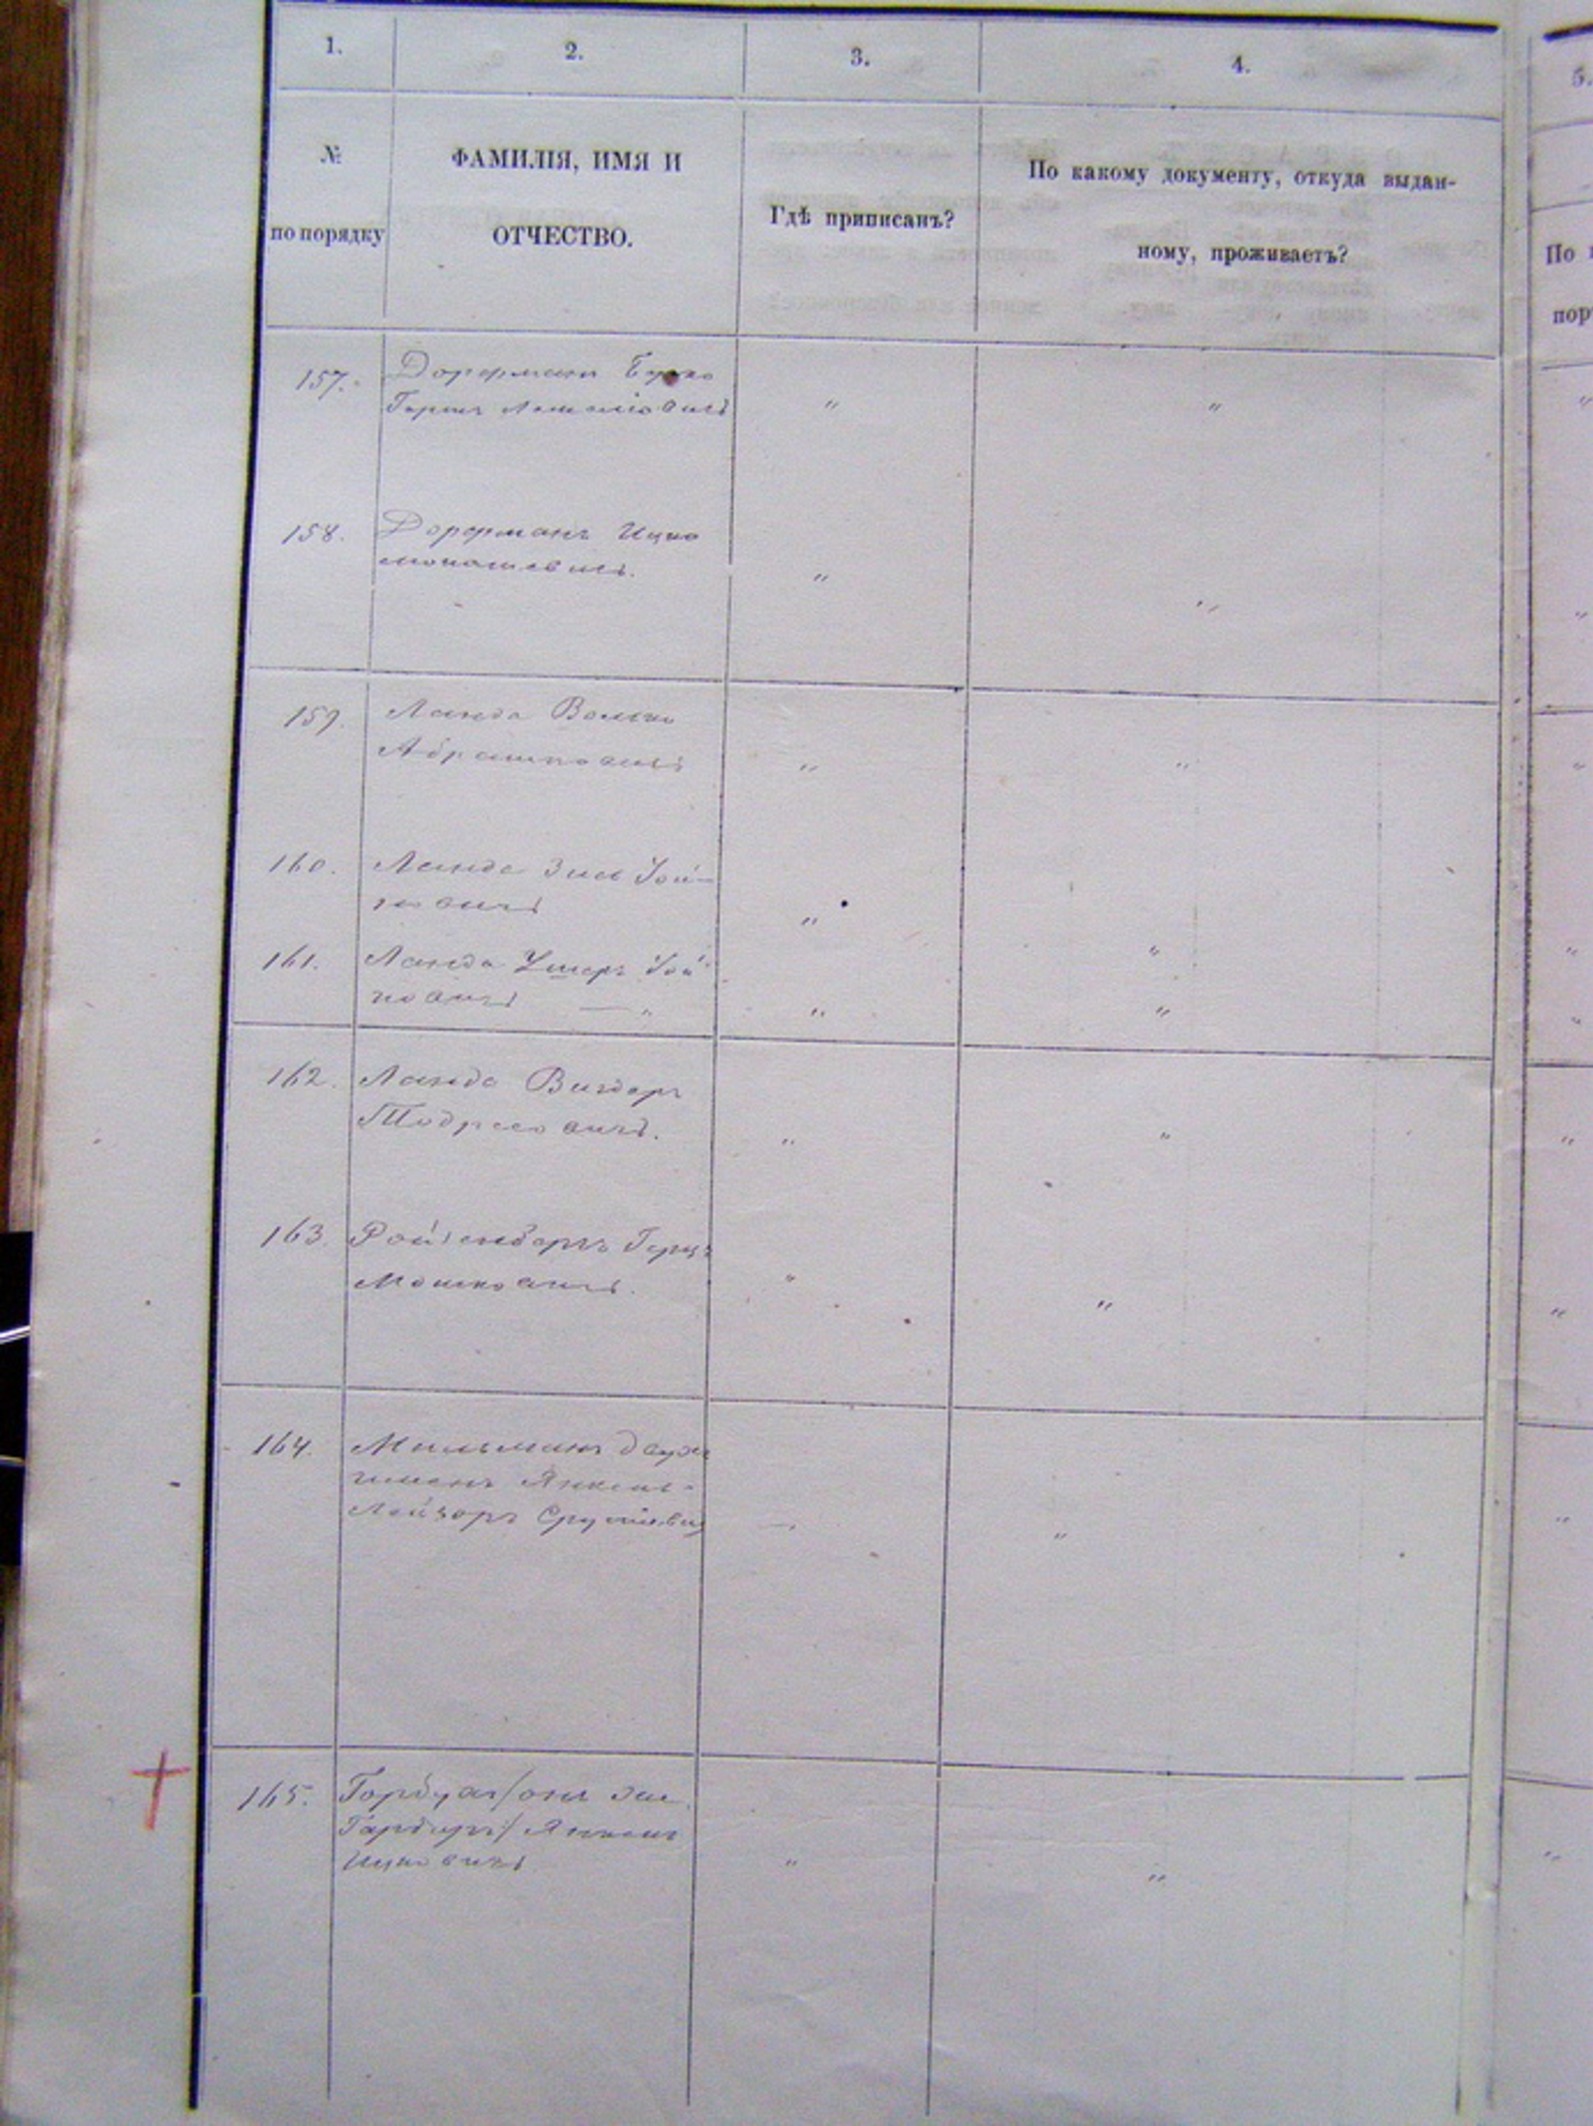 1. 2. 3. 4. 5.
№ по порядку
ФАМИЛІЯ, ИМЯ И
ОТЧЕСТВО.
Гдѣ приписанъ?
По какому документу, откуда выдан-
ному, проживаетъ?
По
пор
157. Дорфманъ
Гершъ " "
158. Дорфманъ Ицко
Мономовичъ. " "
159. Ланда Волько
Абрамковичъ " "
160. Ланда Зис Хай-
мовичъ " "
161. Ланда Ушеръ
" " "
162. Ланда Вигдоръ
Тодресовичъ. " "
163. Ройзенбергъ Герцъ
Мошковичъ. " "
164. Мильманъ двух
именъ Янкель-
Лейзоръ Сруліовичъ "
165. Горбуля/онъ же
Гарберъ/ Янкель
Ицковичъ " "